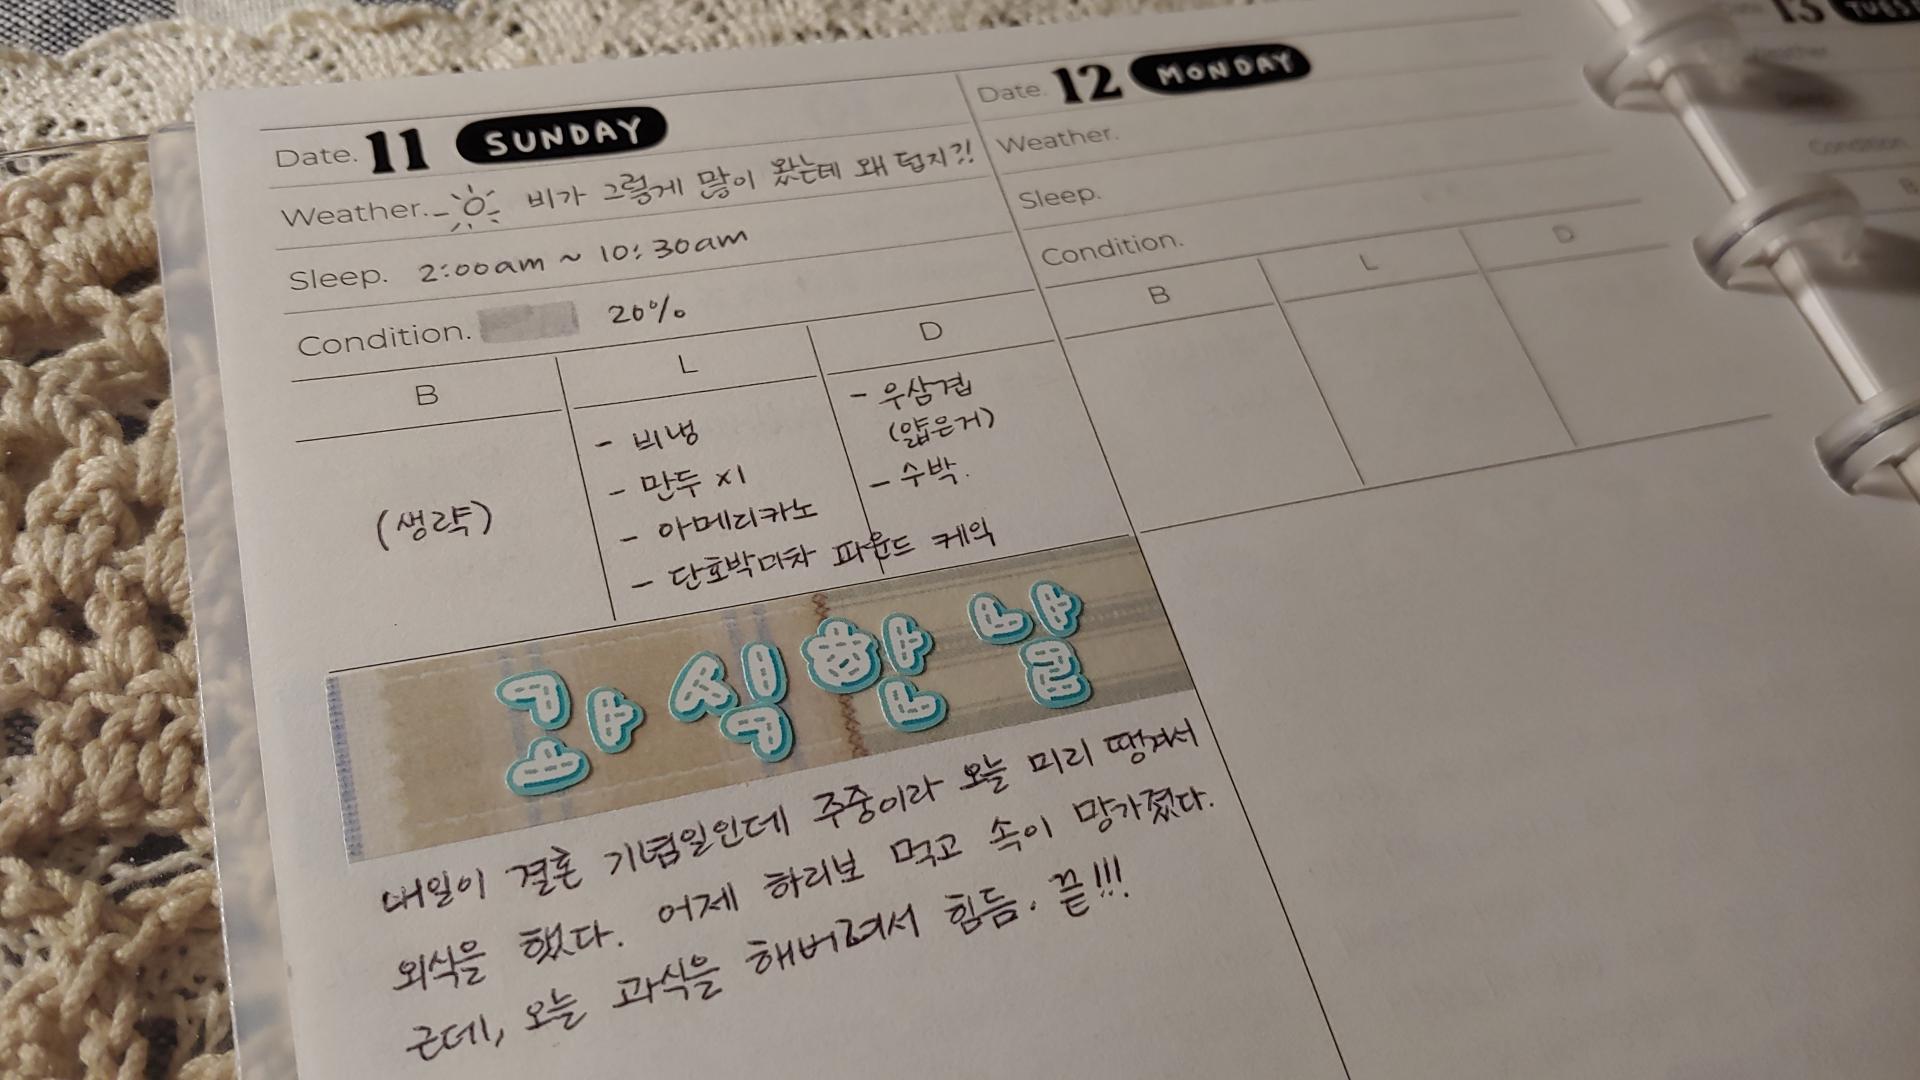 Date. 11 SUNDAY
Weather. 비가 그렇게 많이 왔는데 왜 덥지?!
Sleep. 2:00am ~ 10:30am
Condition. 20%
B
L
D
(생략)
- 비냉
- 만두 x1
- 아메리카노
- 단호박마차 파운드 케익
- 우삼겹
(얇은거)
- 수박.
과식한 날
내일이 결혼 기념일인데 주중이라 오늘 미리 땡겨서
외식을 했다. 어제 하리보 먹고 속이 망가졌다.
근데, 오늘 과식을 해버려서 힘듬. 끝!!!
Date. 12 MONDAY
Weather.
Sleep.
Condition.
B
L
D
13
Weather
Condition.
B